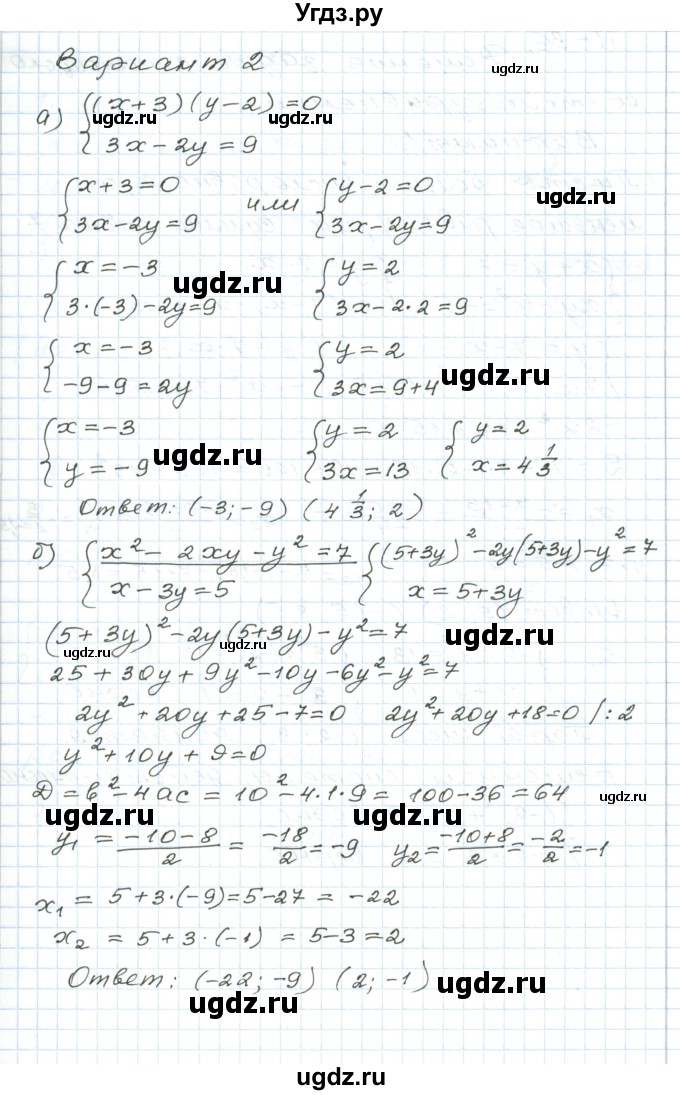 Угдз.ру
Вариант 2
ugdz.ru
а) { (x+3)(y-2)=0
3x-2y=9
ugdz.ru ugdz.ru
{ x+3=0 или { y-2=0
3x-2y=9 3x-2y=9
{ x=-3 { y=2
3·(-3)-2y=9 3x-2·2=9
ugdz.ru
{ x=-3 { y=2
-9-9=2y 3x=9+4
ugdz.ru
{ x=-3 { y=2 { y=2
y=-9 3x=13 x=4 1/3
ugdz.ru
Ответ: (-3; -9) (4 1/3; 2)
б) { x²- 2xy-y²=7 { (5+3y)²-2y(5+3y)-y²=7
x-3y=5 x=5+3y
(5+3y)²-2y(5+3y)-y²=7
ugdz.ru
25+30y+9y²-10y-6y²-y²=7
2y²+20y+25-7=0 2y²+20y+18=0 /:2
y²+10y+9=0
D=b²-4ac = 10²-4·1·9= 100-36=64
ugdz.ru ugdz.ru ugdz.ru
y₁ = -10-8/2 = -18/2 =-9 y₂= -10+8/2 = -2/2 =-1
x₁ = 5+3·(-9)=5-27 = -22
x₂ = 5+3·(-1) = 5-3=2
Ответ: (-22; -9) (2; -1)
ugdz.ru ugdz.ru
ugdz.ru